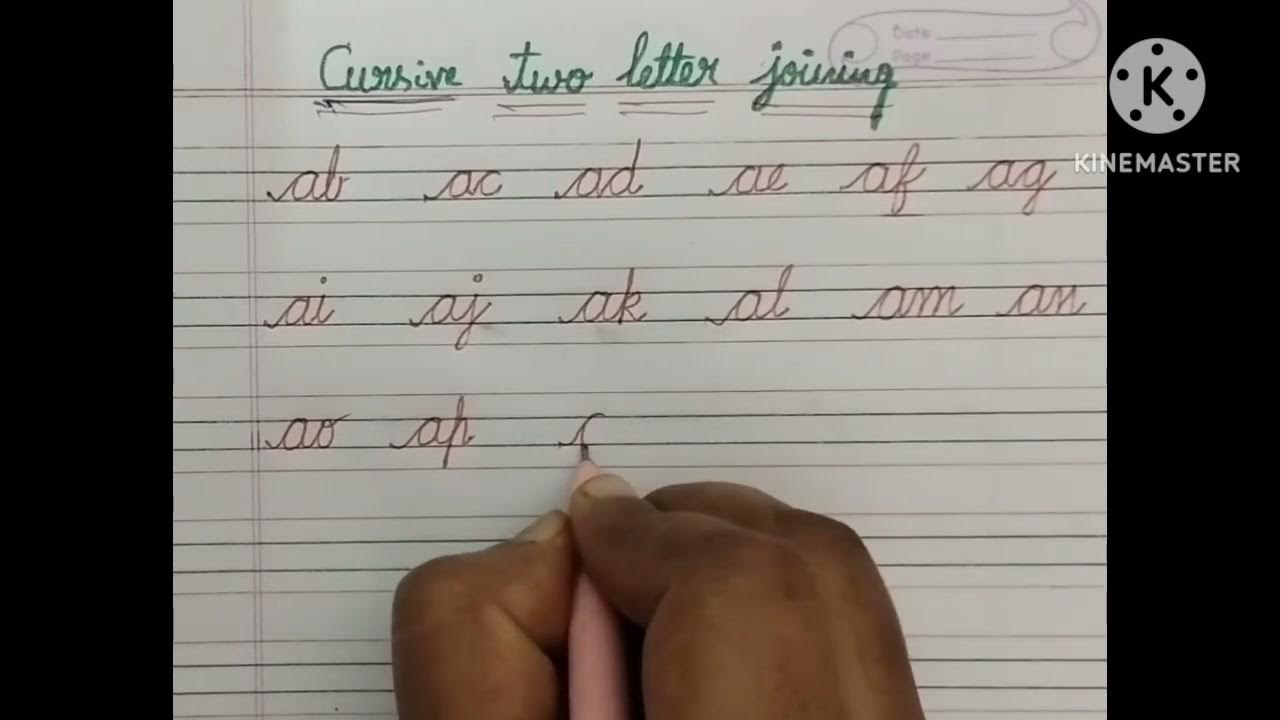 Date
Page
Cursive two letter joining
K
KINEMASTER
ab ac ad ae af ag
ai aj ak al am an
ao ap